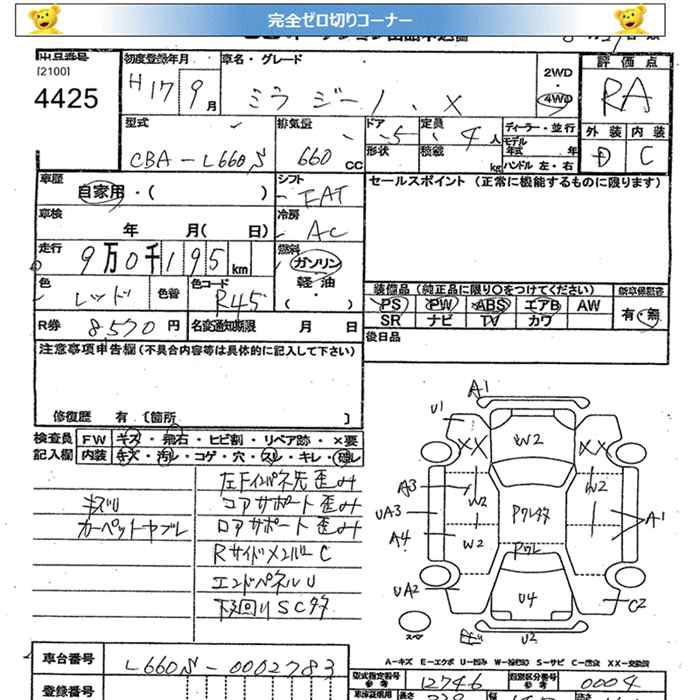 完全ゼロ切りコーナー
出品番号
[2100]
4425
初度登録年月
H17 9月
車名・グレード
ミラ ジーノ X
2WD
4WD
評価点
RA
外装 内装
D C
型式
CBA-L660S
排気量
660 CC
ドア 5
形状
定員 4人
積載 kg
ディーラー・並行
モデル年式 年
ハンドル 左・右
車歴
自家用・( )
シフト
FAT
セールスポイント (正常に機能するものに限ります)
車検
年 月( 日)
冷房
AC
走行
9万0千195km
燃料
ガソリン
軽・油
・( )
色
レッド
色替
色コード
R45
装備品 (純正品に限り○をつけてください)
PS PW ABS エアB AW
SR ナビ TV カワ
新車保証書
有・無
R券 8,570円
名変通知期限 月 日
後日品
注意事項申告欄(不具合内容等は具体的に記入して下さい)
修復歴 有 〔箇所 〕
検査員
記入欄
FW キズ・飛石・ヒビ割・リペア跡・×要
内装 キズ・汚レ・コゲ・穴・スレ・キレ・破レ
キズU
カーペットヤブレ
左Fインパネ先歪み
コアサポート歪み
ロアサポート歪み
RサイドメンバーC
エンドパネルU
下廻りSCタタ
A1
U1
XX W2 XX
A3 W2 W2
UA3 A1
A4 W2
UA2 U4 C2
U2
スペア
A-キズ E-エクボ U-凹み W-補修跡 S-サビ C-腐食 XX-交換済
車台番号
L660S-0002783
登録番号
型式指定番号
参考
12746
類別区分番号
参考
0004